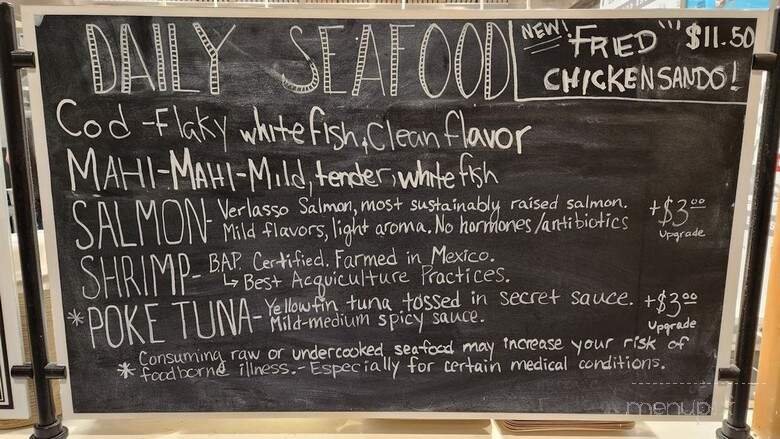 DAILY SEAFOOD
NEW! "FRIED" $11.50
CHICKEN SANDO!
Cod - Flaky white fish, Clean flavor
MAHI-MAHI - Mild, tender, white fish
SALMON - Verlasso Salmon, most sustainably raised salmon.
Mild flavors, light aroma. No hormones/antibiotics
+$3.00
upgrade
SHRIMP - BAP Certified. Farmed in Mexico.
↳ Best Acquiculture Practices.
* POKE TUNA - Yellowfin tuna tossed in secret sauce.
Mild-medium spicy sauce.
+$3.00
upgrade
* Consuming raw or undercooked seafood may increase your risk of
foodborne illness. - Especially for certain medical conditions.
menupix